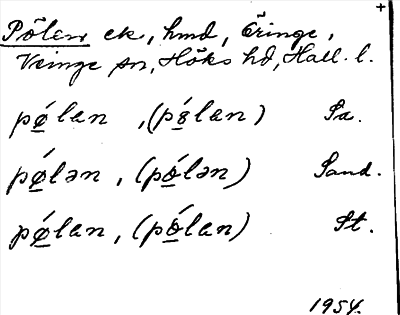 +
Pölen ek, hmd, Öringe,
Veinge sn, Höks hd, Hall. l.
pǿ̲lan , (pö̲́lan) Sa.
pǿ̲lən , (pö̲́lən) Sand.
pǿ̲lan , (pö̲́lan) St.
1954.